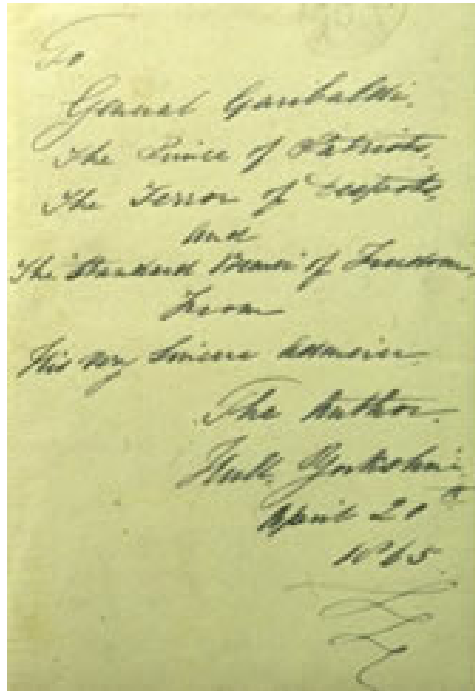 To
General Garibaldi.
The Prince of Patriots,
The Terror of Despots,
and
The Standard Bearer of Freedom
From
His very Sincere Admirer
The Author.
Hull, Yorkshire,
April 20th
1865